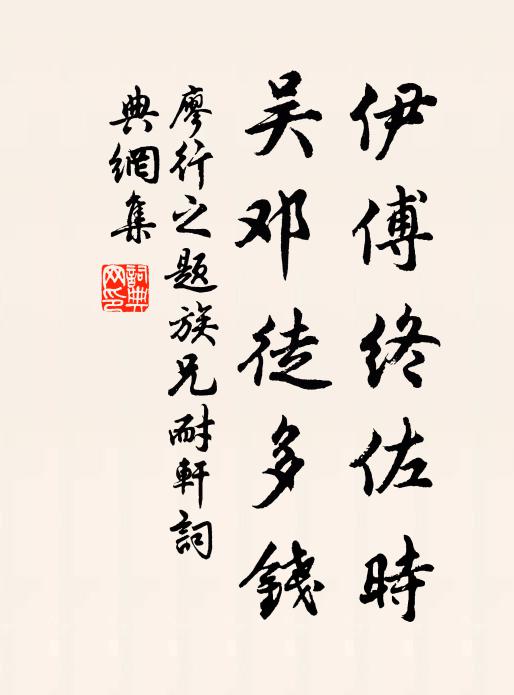 伊傅终佐時
吴邓徒多錢
廖行之题族兄耐軒詞
典網集
詞典网印